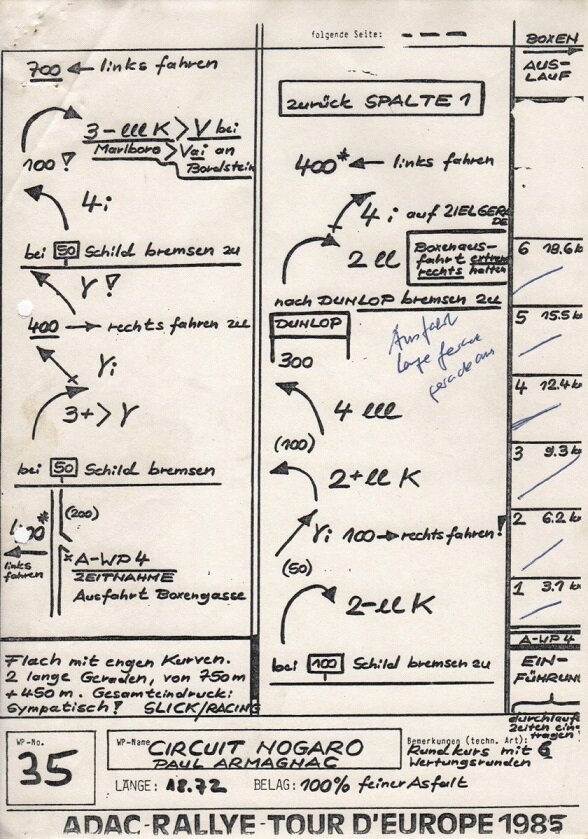 folgende Seite:
700 ← links fahren
3-lllK > V bei
Marlboro > Vai an
Bordstein
100!
4i
bei 50 Schild bremsen zu
Y!
400 → rechts fahren zu
Yi
3+ > Y
bei 50 Schild bremsen
(200)
links
fahren
A-WP4
ZEITNAHME
Ausfahrt Boxengasse
Flach mit engen Kurven.
2 lange Geraden, von 750m
+ 450m. Gesamteindruck:
Sympatisch! SLICK/RACING
zurück SPALTE 1
400* ← links fahren
4i auf ZIELGERA
DE
2ll
Boxenaus-
fahrt extrem
rechts halten
nach DUNLOP bremsen zu
DUNLOP
300
Ausfahrt
lange
geradeaus
4 lll
(100)
2+llK
Yi 100 → rechts fahren!
(50)
2-lllK
bei 100 Schild bremsen zu
BOXEN
AUS-
LAUF
6 18.6 k
5 15.5 k
4 12.4 k
3 9.3 k
2 6.2 k
1 3.1 k
A-WP4
EIN-
FÜHRUN
durchlauf
zeiten ein-
tragen
WP-No.
35
WP-Name
CIRCUIT NOGARO
PAUL ARMAGNAC
Bemerkungen (techn. Art):
Rundkurs mit 6
Wertungsrunden
LÄNGE: 18.72 BELAG: 100% feiner Asfalt
ADAC-RALLYE-TOUR D'EUROPE 1985